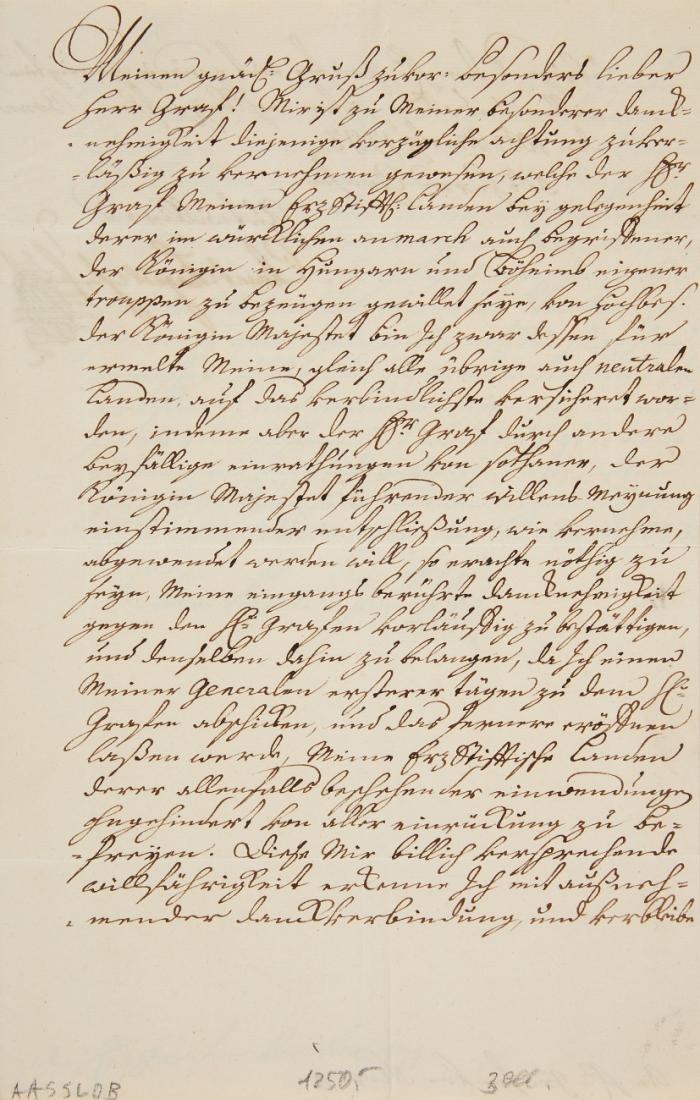 Meinen gnädg: Gruß zuvor: besonders lieber
Herr Graf! Mir ist zu Meiner besonderer danck-
nehmigkeit diejenige vorzügliche achtung zuver-
-läßig zu vernehmen gewesen, welche der Hr
Graf Meinen Erz Stifftl: Landen bey gelegenheit
derer im würcklichen anmarch auch begriffener,
der Königin in Hungarn und Böheimb eigener
trouppen zu bezeügen gewillet seye, von Hochbes.
der Königin Majestet bin Ich zwar dessen für
ermelte Meine, gleich alle übrige auch neutrale
Landen, auf das verbindlichste versicheret wor-
den, indeme aber der Hr Graf durch andere
beyfällige einrathungen von sothaner, der
Königin Majestet führender willens Meynung
einstimmender entschließung, wie vernehme,
abgewendet werden will, so erachte nöthig zu
seyn, Meine eingangs berührte dancknehmigkeit
gegen den H: Grafen vorläuffig zu bestättigen,
und denselben dahin zu belangen, da Ich einen
Meiner Generalen ersterer tägen zu dem H:
Grafen abschicken, und das fernere eröffnen
laßen werde, Meine Erz Stifftische Landen
derer allenfalls beschehender einwendungen
ohngehindert von aller einrückung zu be-
-freyen. Diese Mir billich versprechende
willfährigkeit erkenne Ich mit außneh-
mender danckverbindung, und verbleibe
AASSLOB 12505